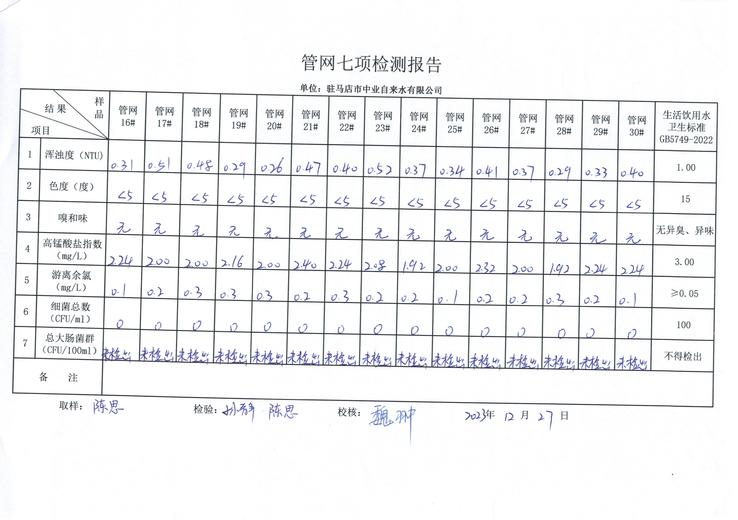 管网七项检测报告
单位：驻马店市中业自来水有限公司
结果 样品 项目 管网16# 管网17# 管网18# 管网19# 管网20# 管网21# 管网22# 管网23# 管网24# 管网25# 管网26# 管网27# 管网28# 管网29# 管网30# 生活饮用水卫生标准GB5749-2022
1 浑浊度（NTU） 0.31 0.51 0.48 0.29 0.26 0.47 0.40 0.52 0.37 0.34 0.41 0.37 0.29 0.33 0.40 1.00
2 色度（度） <5 <5 <5 <5 <5 <5 <5 <5 <5 <5 <5 <5 <5 <5 <5 15
3 嗅和味 无 无 无 无 无 无 无 无 无 无 无 无 无 无 无 无异臭、异味
4 高锰酸盐指数（mg/L） 2.24 2.00 2.00 2.16 2.00 2.40 2.24 2.08 1.92 2.00 2.32 2.00 1.92 2.24 2.24 3.00
5 游离余氯（mg/L） 0.1 0.2 0.3 0.3 0.3 0.2 0.3 0.2 0.2 0.1 0.2 0.2 0.3 0.2 0.1 ≥0.05
6 细菌总数（CFU/ml） 0 0 0 0 0 0 0 0 0 0 0 0 0 0 0 100
7 总大肠菌群（CFU/100ml） 未检出 未检出 未检出 未检出 未检出 未检出 未检出 未检出 未检出 未检出 未检出 未检出 未检出 未检出 未检出 不得检出
备 注
取样：陈思 检验：孙静 陈思 校核：魏翀 2023年 12月 27日